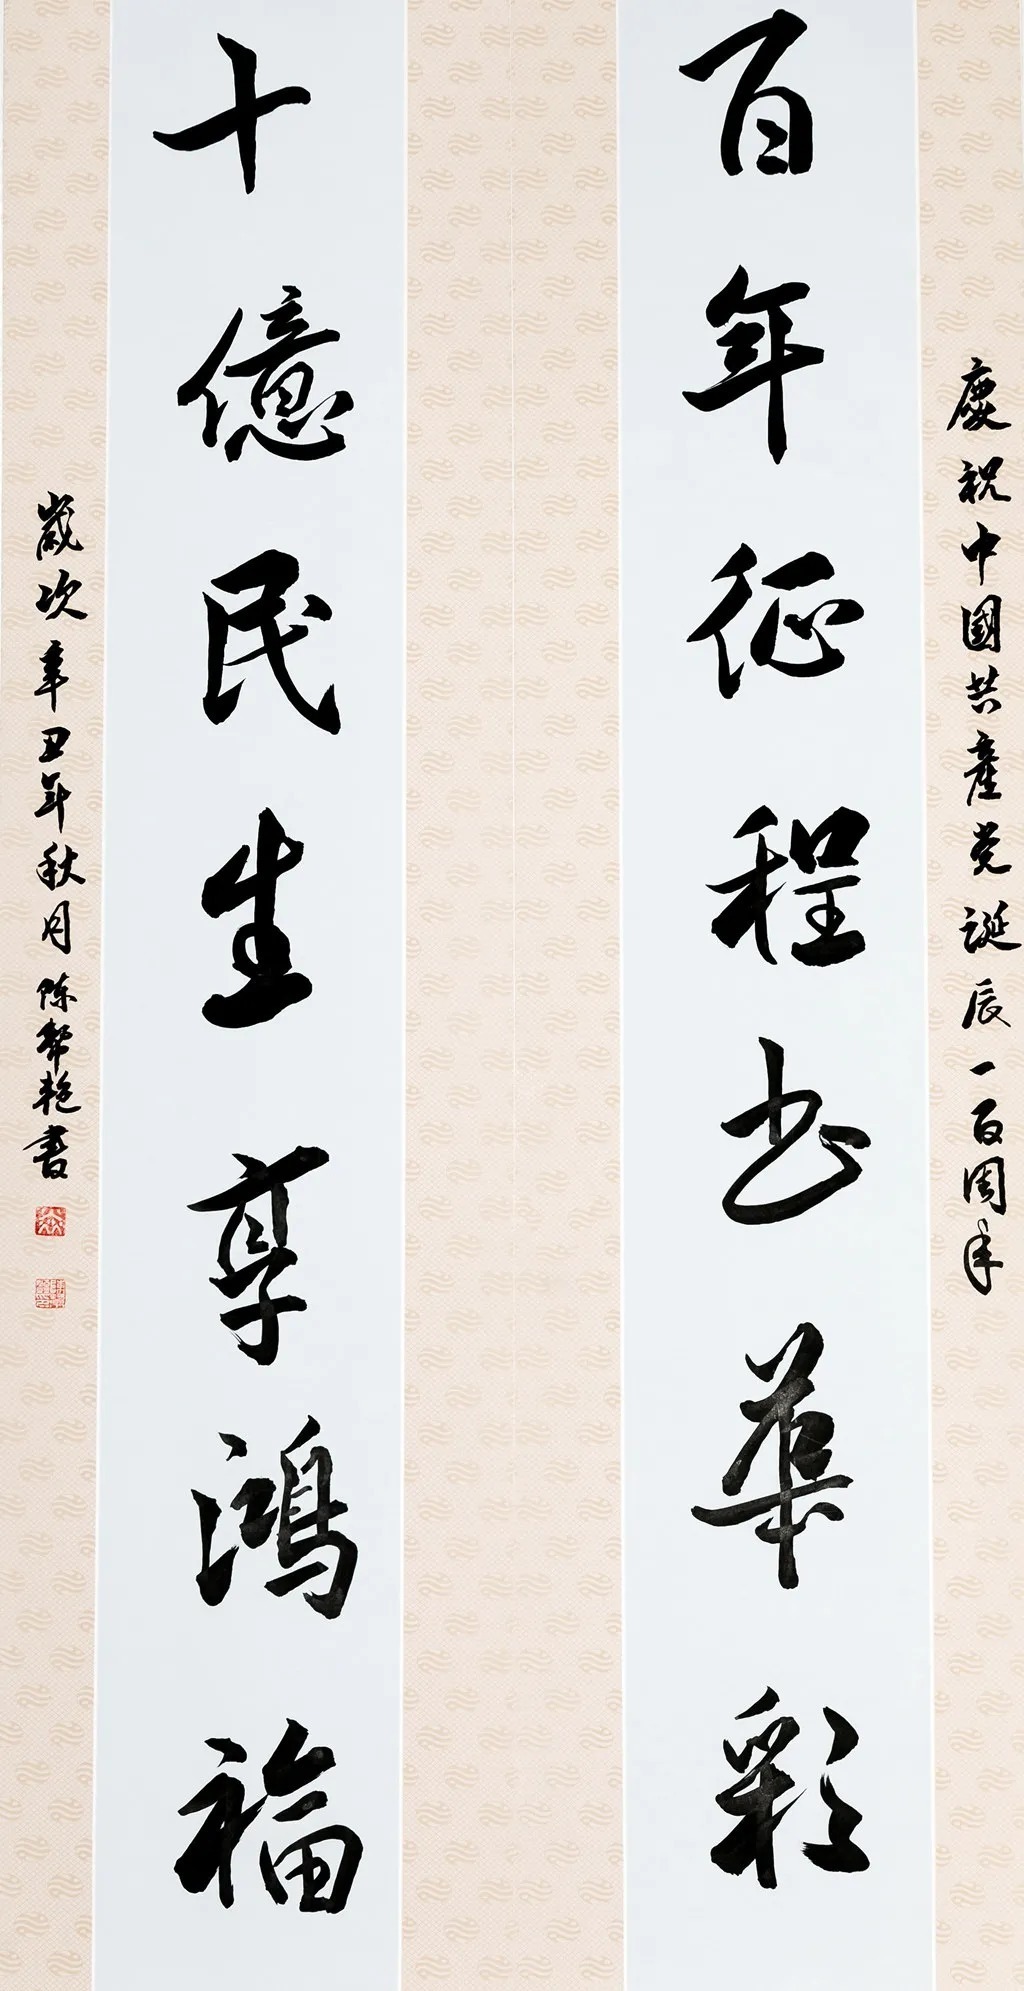 慶祝中國共產党誕辰一百周年
百年征程书華彩
十億民生享鴻福
歲次辛丑年秋月陈帮艳書